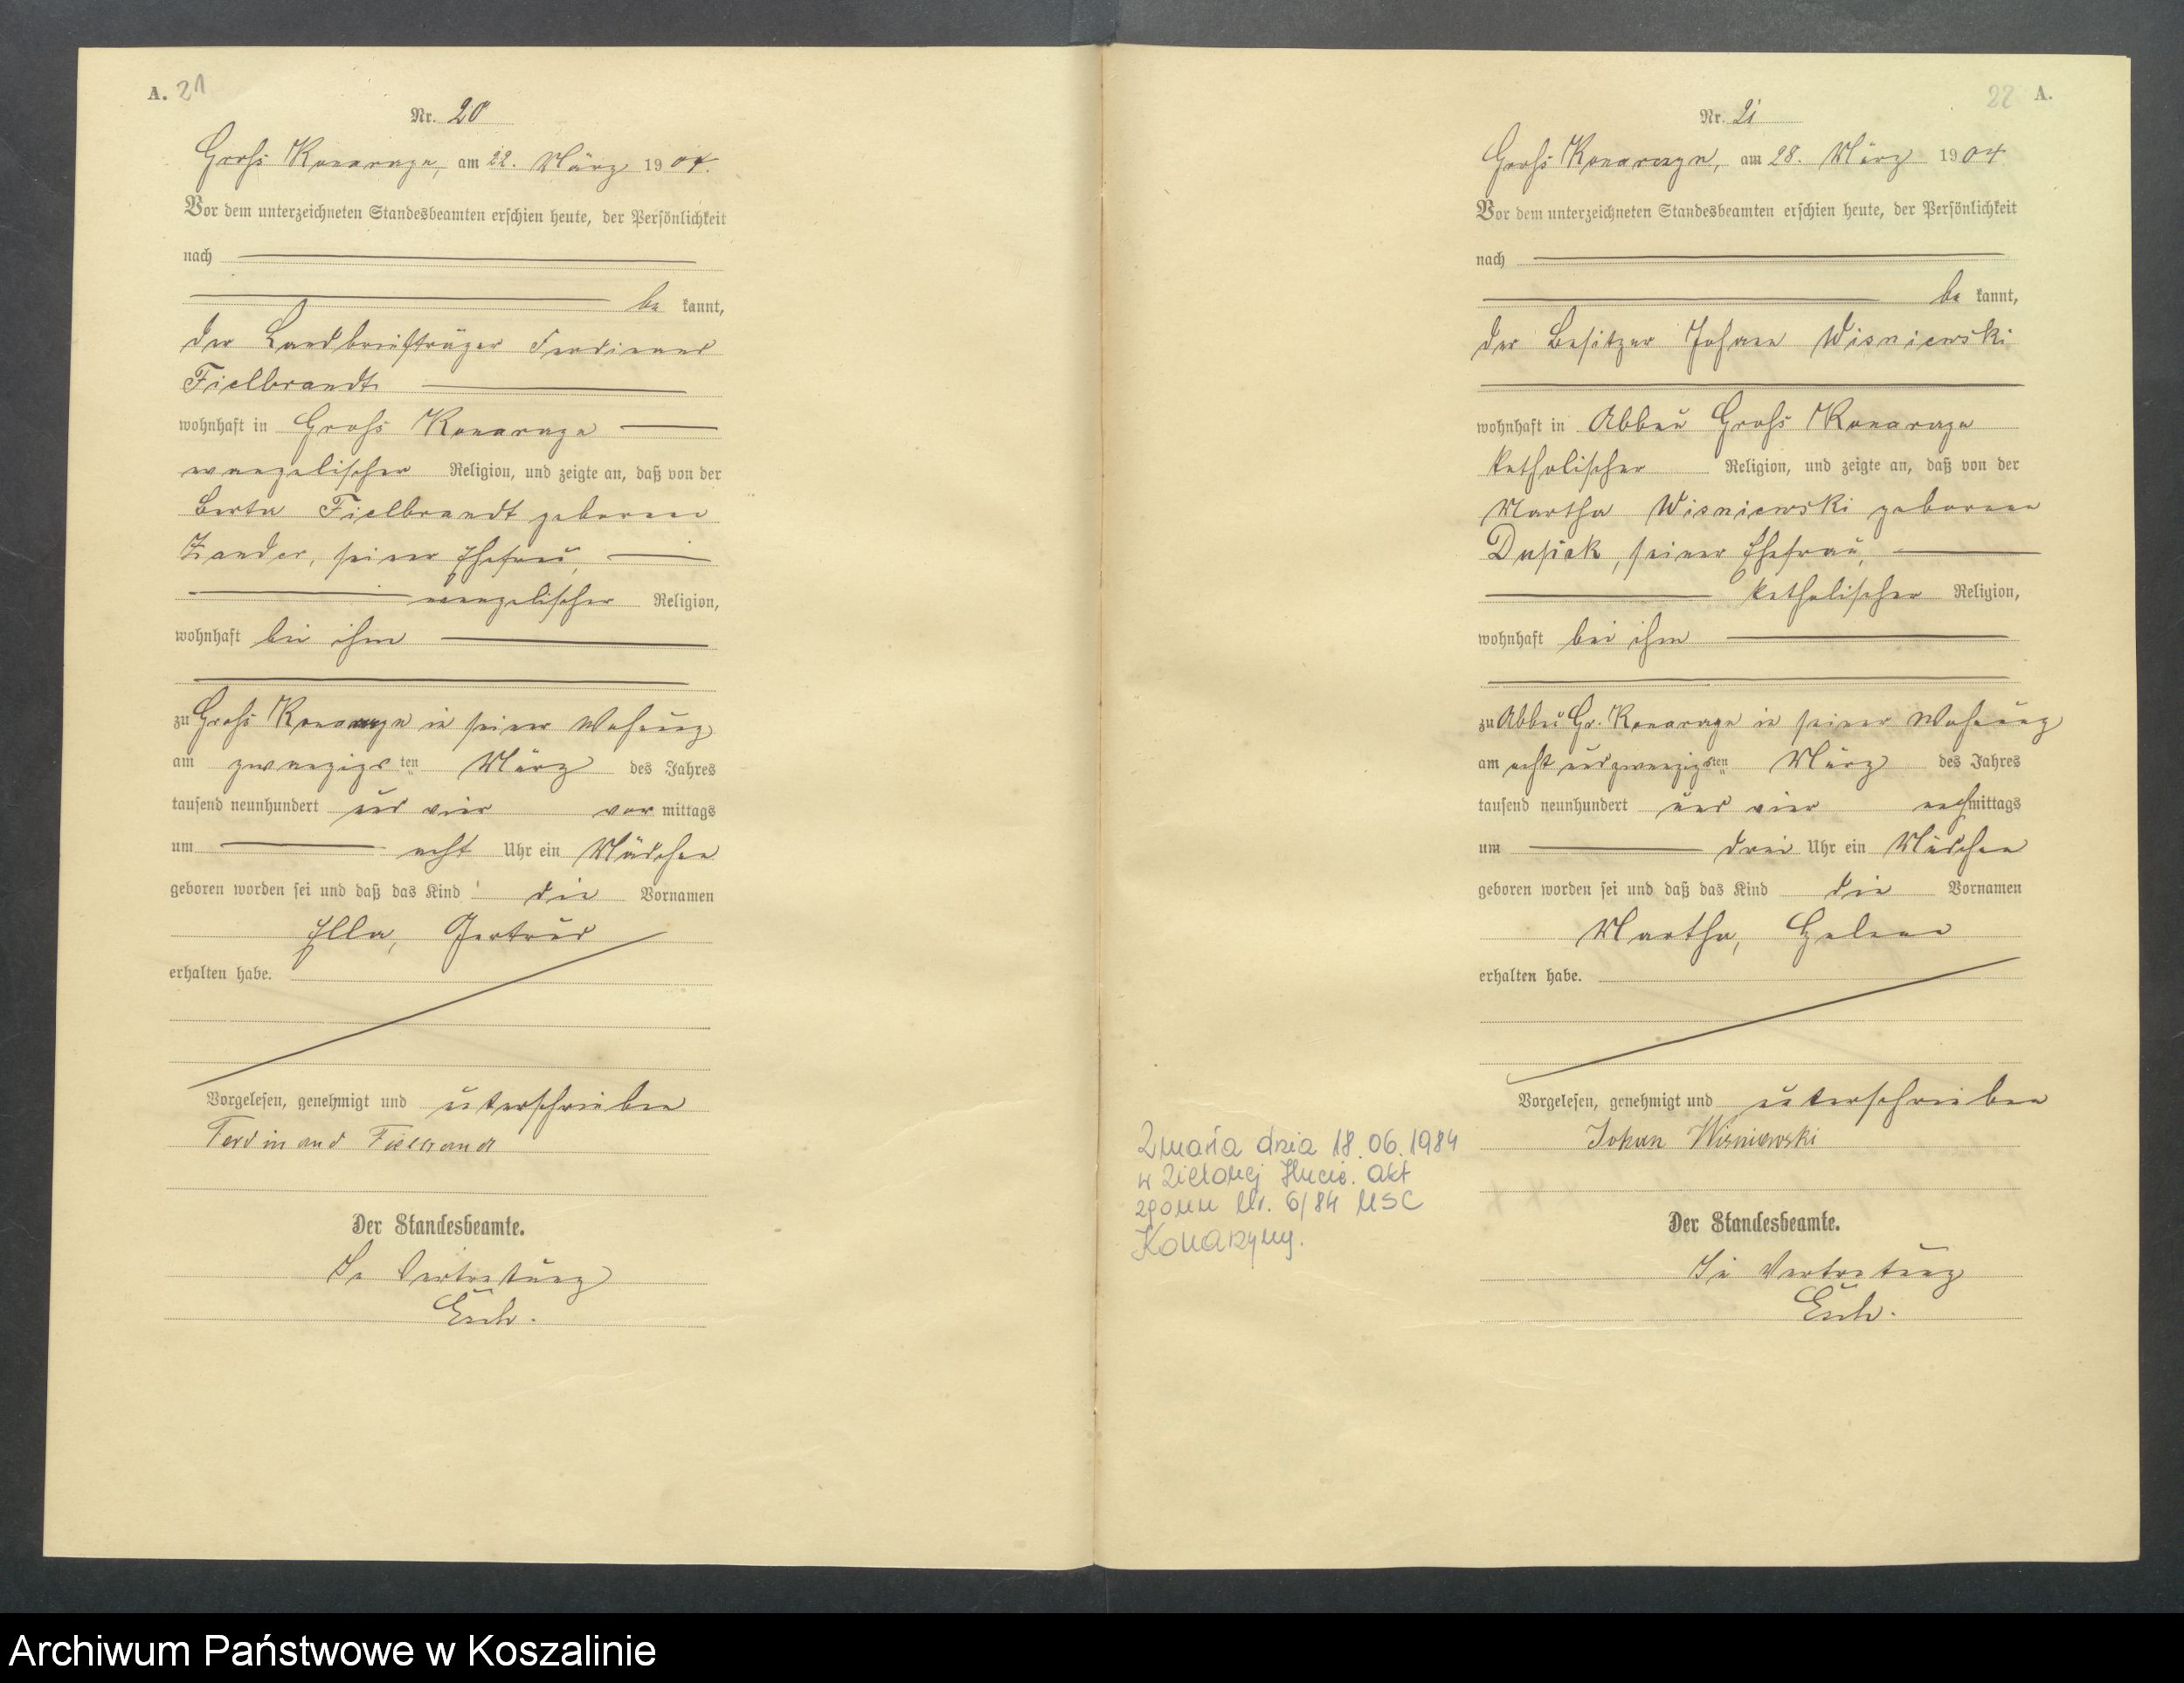 A. 21
Nr. 20
Groß Konarzyn, am 22. März 1904.
Vor dem unterzeichneten Standesbeamten erschien heute, der Persönlichkeit
nach
be kannt,
der Landbriefträger Ferdinand
Fielbrandt
wohnhaft in Groß Konarzyn
evangelischer Religion, und zeigte an, daß von der
Berta Fielbrandt geborene
Zander, seiner Ehefrau,
evangelischer Religion,
wohnhaft bei ihm
zu Groß Konarzyn in seiner Wohnung
am zwanzigsten März des Jahres
tausend neunhundert und vier vor mittags
um acht Uhr ein Mädchen
geboren worden sei und daß das Kind die Vornamen
Ella, Gertrud
erhalten habe.
Vorgelesen, genehmigt und unterschrieben
Ferdinand
Der Standesbeamte.
In Vertretung
22 A.
Nr. 21
Groß Konarzyn, am 28. März 1904
Vor dem unterzeichneten Standesbeamten erschien heute, der Persönlichkeit
nach
be kannt,
der Besitzer Johann Wisniewski
wohnhaft in Abbau Groß Konarzyn
katholischer Religion, und zeigte an, daß von der
Martha Wisniewski geborene
seiner Ehefrau,
katholischer Religion,
wohnhaft bei ihm
zu Abbau Gr. Konarzyn in seiner Wohnung
am acht und zwanzigsten März des Jahres
tausend neunhundert und vier nachmittags
um drei Uhr ein Mädchen
geboren worden sei und daß das Kind die Vornamen
Martha, Helene
erhalten habe.
Vorgelesen, genehmigt und unterschrieben
Johan Wisniewski
Der Standesbeamte.
In Vertretung
Zmarła dnia 18.06.1984
w Zielonej Hucie. Akt
zgonu Nr. 6/84 USC
Konarzyny.
Archiwum Państwowe w Koszalinie